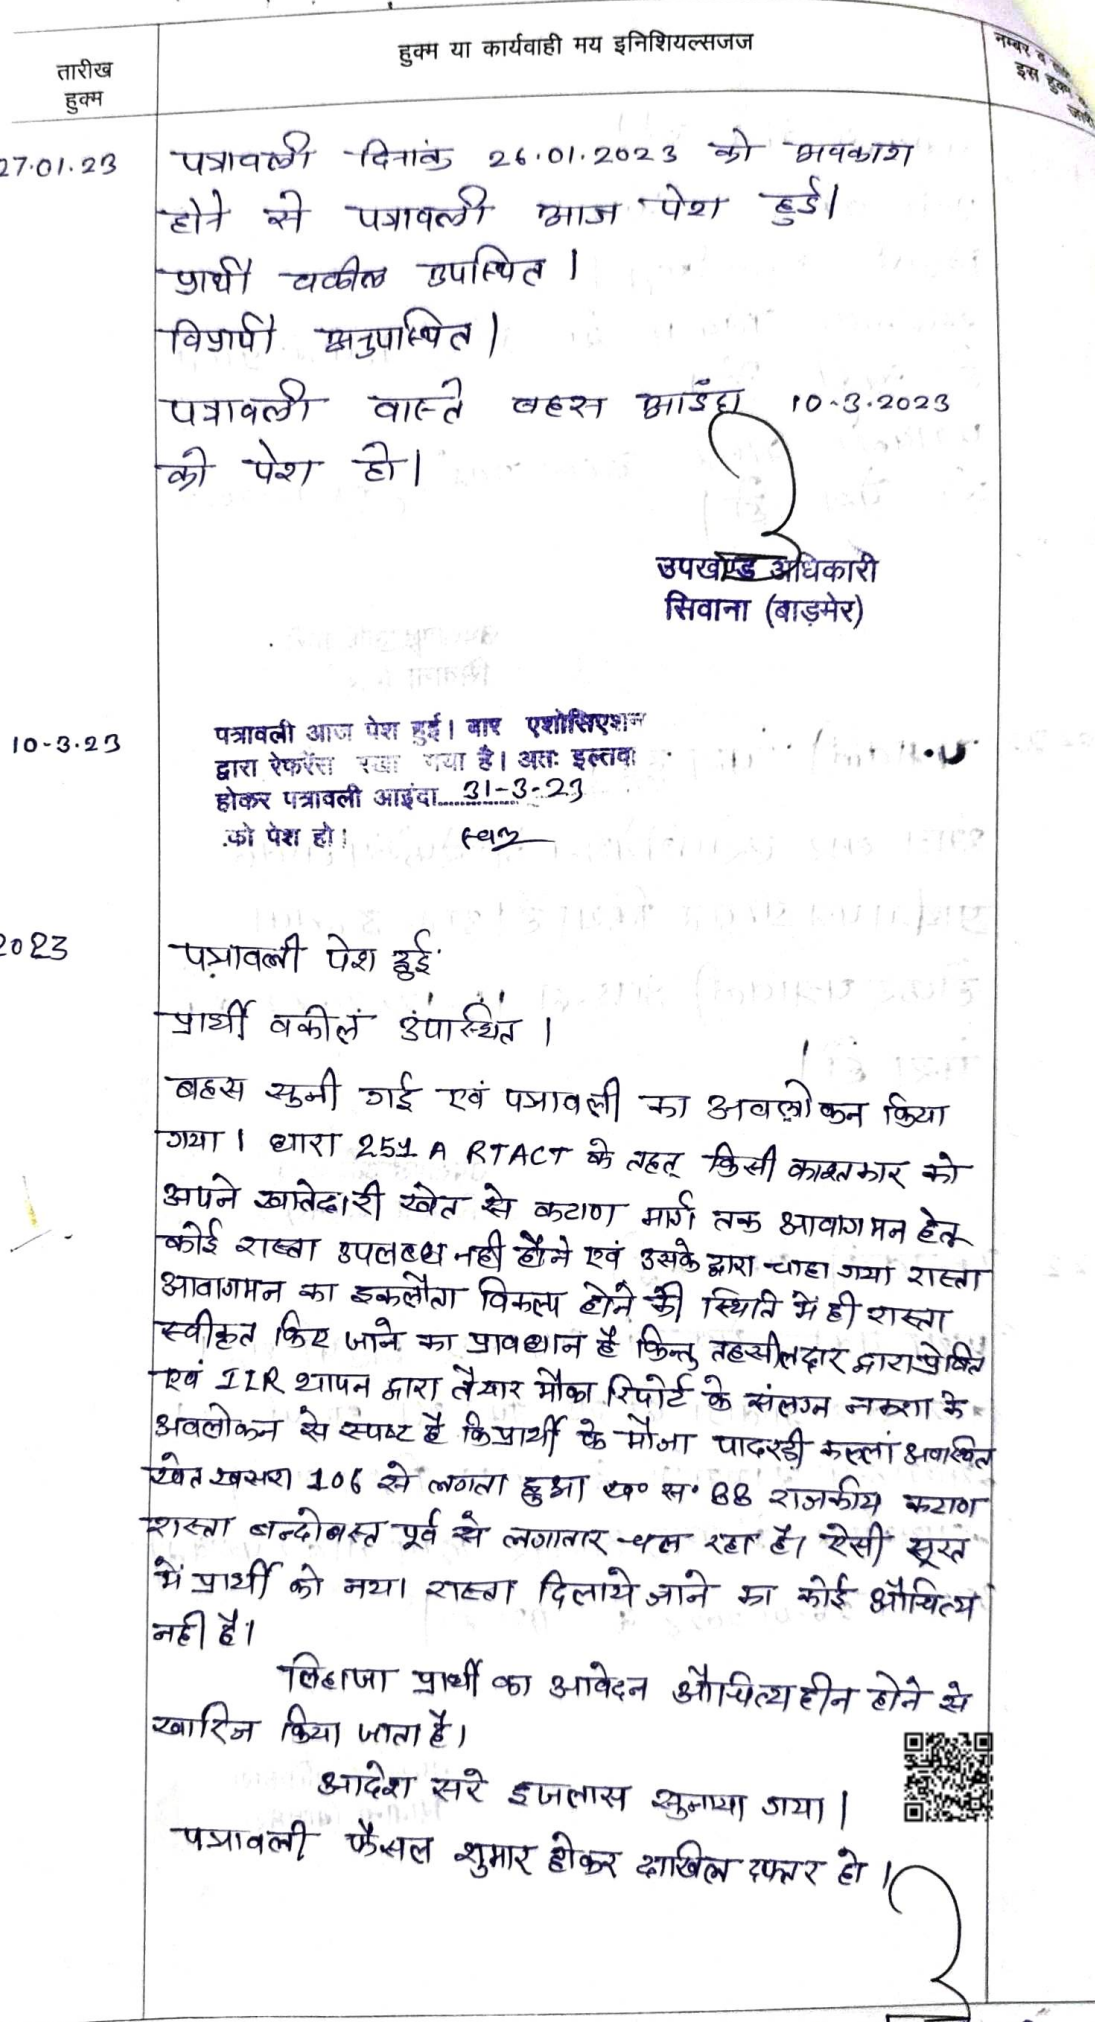 तारीख
हुक्म
हुक्म या कार्यवाही मय इनिशियल्सजज
नम्बर व
इस हुक्म
जारी
27.01.23
पत्रावली दिनांक 26.01.2023 को अवकाश
होने से पत्रावली आज पेश हुई।
प्रार्थी वकील उपस्थित।
विप्रार्थी अनुपस्थित।
पत्रावली वास्ते बहस आईंदा 10-3.2023
को पेश हो।
उपखण्ड अधिकारी
सिवाना (बाड़मेर)
10-3-23
पत्रावली आज पेश हुई। बार एशोसिएशन
द्वारा रेफरेंस रखा गया है। अतः इल्तवा
होकर पत्रावली आइंदा 31-3-23
को पेश हो।
2023
पत्रावली पेश हुई
प्रार्थी वकील उपस्थित।
बहस सुनी गई एवं पत्रावली का अवलोकन किया
गया। धारा 251 A RTACT के तहत् किसी काश्तकार को
अपने खातेदारी खेत से कटाण मार्ग तक आवागमन हेतू
कोई रास्ता उपलब्ध नही होने एवं उसके द्वारा चाहा गया रास्ता
आवागमन का इकलौता विकल्प होने की स्थिति मे ही रास्ता
स्वीकृत किए जाने का प्रावधान है किन्तु तहसीलदार द्वारा प्रेषित
एवं ILR थापन द्वारा तैयार मौका रिपोर्ट के संलग्न नक्शा के
अवलोकन से स्पष्ट है कि प्रार्थी के मौजा पादरडी कल्लां अवस्थित
खेत खसरा 106 से लगता हुआ ख० स० 88 राजकीय कटाण
रास्ता बन्दोबस्त पूर्व से लगातार चल रहा है। ऐसी सूरत
में प्रार्थी को नया रास्ता दिलाये जाने का कोई औचित्य
नही है।
लिहाजा प्रार्थी का आवेदन औचित्यहीन होने से
खारिज किया जाता है।
आदेश सरे इजलास सुनाया गया।
पत्रावली फैसल शुमार होकर दाखिल दफ्तर हो।